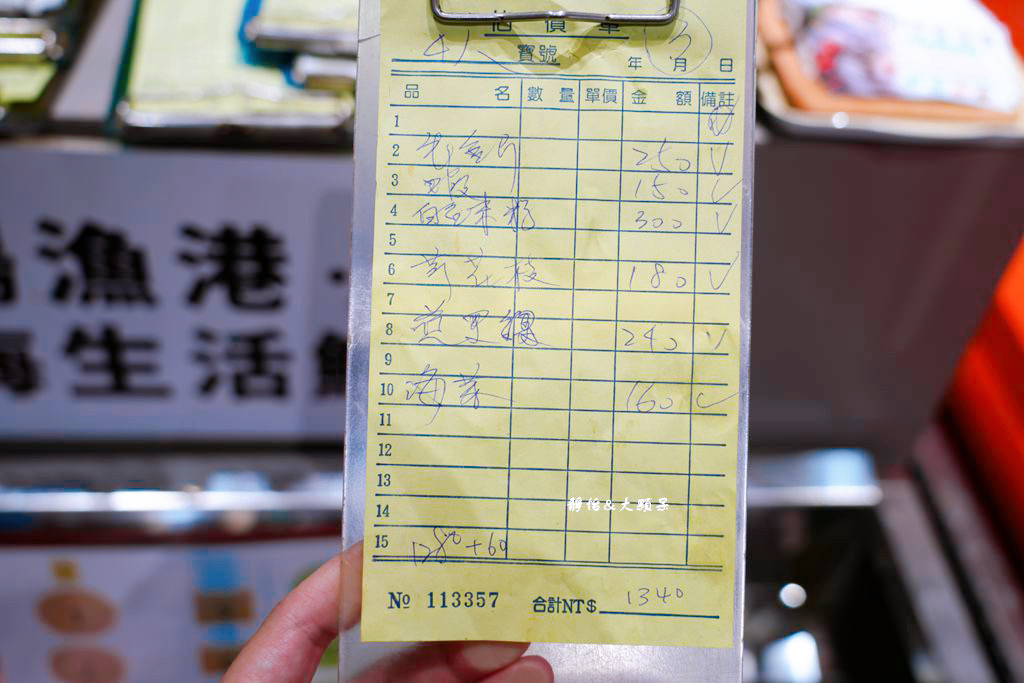 估價單
4人 寶號 年 月 日
品 名 數 量 單價 金 額 備註
1
2 生魚片 250 V
3 蝦 150 V
4 300 V
5
6 花枝 180 V
7
8 240 V
9
10 海菜 160 V
11
12
13
14
15 1280+60
№ 113357 合計NT$ 1340
漁港
生活
靜怡&大顆呆